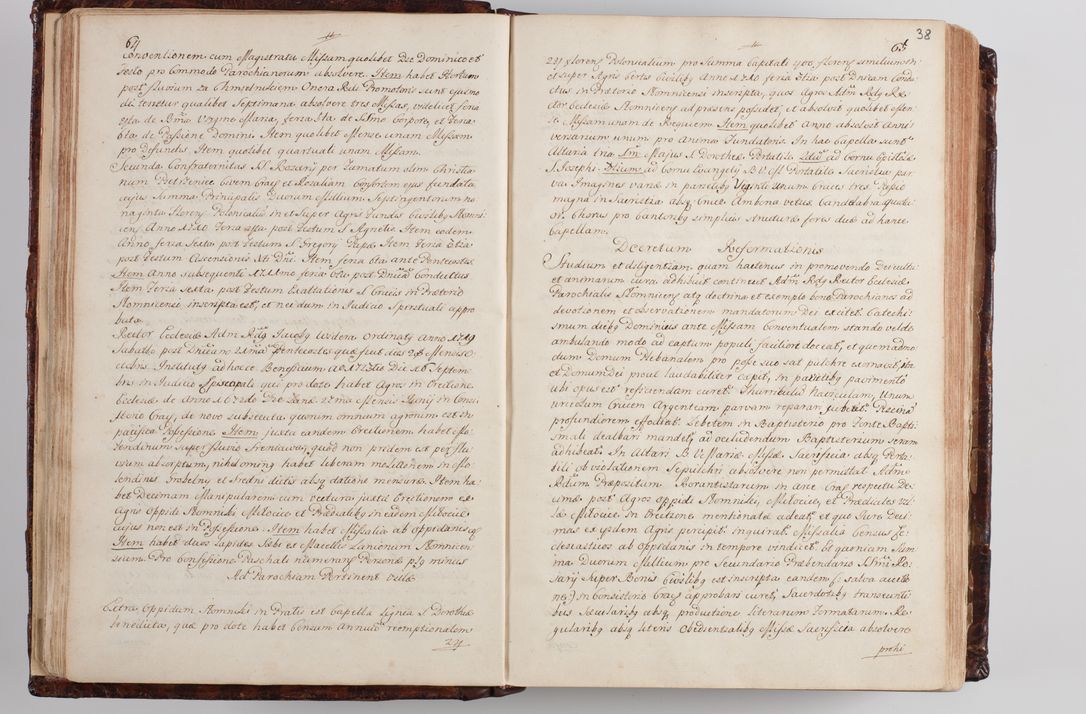 64
Conventionem cum Magistratu Missam quolibet Die Dominico et
Festo pro Commodo Parochianorum absolvere. Item habet Hortum
post fluvium za Chmielnikiem Onera Rdi Promotoris sunt ejusmo
di: tenetur qualibet Septimana absolvere tres Missas, videlicet feria
sta de Bma Virgine Maria, feria 5ta de SSmo Corpore, et feria
6ta de Passione Domini. Item quolibet Mense unam Missam
pro Defunctis Item quolibet quartuali unam Missam.
Secunda Confraternitas SS. Rosarij per Famatum olim Christia
num Civem Crac et Rosaliam Consortem ejus fundata
cujus Summa Principalis Duorum Millium Septingentorum no
naginta Floren Polonicalium in et Super Agris Fundis Civilibq Slomni
cen Anno 1720 Feria 6ta post Festum S. Agnetis Item eodem
Anno feria Sexta post Festum S. Gregorij Papæ Item Feria 6tia
post Festum Ascensionis Xti Dni. Item feria 6ta ante Pentecostes
Item Anno subsequenti 1721mo feria 6ta post Dnicã Conductus
Item Feria Sexta post Festum Exaltationis S. Crucis in Prætorio
Slomnicensi inscripta est, et nec dum in Judicio Spirituali appro
bata.
Rector Ecclesiæ Adm Rdq Jacobq ordinatq Anno 1719
Subatho post Dnicam 21mã Pentecostes quæ fuit dies 28 Mensis
cebris. Institutq ad hocce Beneficium A 1727 Die 16 Septem
bris in Judicio Episcopali qui pro dote habet Agros in Erectione
Ecclesiæ de Anno 1672do Die Lunæ 27ma Mensis Junij in Consi
storio Crac, de novo Subsecuta quorum omnium agrorum est in
pacifica Possessione Item juxta eandem Erectionem habet Mo
lendinum Super fluvio Sreniawa, quod non pridem est per flu
vium absorptum, nihilominq habet liberam moliturem in Mo
lendinis Grobelny et Sredni dictis absq datione mensuræ. Item ha
bet Decimam Manipularem cum vectura juxta Erectionem ex
Agris Oppidi Slomniki Milocice et Prædialibq in eadem Milocice
cujus non est in Possessione: Item habet Missalia ab Oppidanis
Item habet duos lapides Sebi ex Macellis Lanionum Slomnicen
sium. Pro Confessione Paschali numerans Personæ plq minus
Ad Parochiam Pertinent Villæ
Extra Oppidum Slomniki in Pratis est Capella lignea S. Dorotheæ
benedicta, quæ pro dote habet Censum Annuũ reemptionalem
27
38
65
27 florens Polonicalium pro Summa Capitali 400 florens similium in
et super Agris Certis Civilibq Anno 1710 feria 6tia post Dnicam Condu
ctus in Prætorio Slomnicensi inscripta, quos Agros Adm Rdq Re
ctor Ecclesiæ Slomnicens ad præsens possidet, et absolvit quolibet Men
se Missam unam de Requiem Item quolibet anno absolvit Anni
versarium unum pro Anima Fundatoris In hac Capella sunt
Altaria tria 1m Majus S. Dorotheæ Portatile 2dũ ad Cornu Epistolæ
S. Josephi. 3tium ad Cornu Evangelij B.V. est Portatile Sacristia par
va Imagines variæ in parietibq Viginti Unum Cruces tres Passio
magna in Sacristia absq Cruce. Ambona vetus Candelabra quatu
or. Chorus pro Cantoribq Simplicis Structuræ fores duæ ad hanc
Capellam.
Decretum Reformationis
Studium et diligentiam, quam hactenus in promovendo Dei cultu
et animarum cura adhibuit continuet Adm Rdq Rector Ecclesiæ
Parochialis Slomnicens atq doctrina et exemplo bono Parochianos ad
devotionem et observationem mandatorum Dei excitet. Catechi
smum diebq Dominicis ante Missam Conventualem stando vel de
ambulando modo ad captum populi faciliori doceat, et quemadmo
dum Domum Plebanalem pro posse suo sat pulchre exornavit, ita
et Domum Dei prout laudabiliter cæpit, in parietibq pavimento
ubi opus est reficiendam curet. Thuribulũ Naviculam, Unum
urceolum Crucem Argenteam parvam reparari jubebit. Piscinã
profundiorem effodiat. Lebetem in Baptisterio pro Fonte Bapti
smali dealbari mandet, ad occludendum Baptisterium seram
adhibeat. In Altari B.V. Mariæ Missæ Sacrificia absq Porta
bili ob violationem Sepulchri absolvere non permittat Adm
Rdum Præpositum Rorantistarum in Arce Crac respectu De
cimæ post Agros Oppidi Slomniki, Milocice, et Prædiales vil
læ Milocice in Erectione mentionatæ adeat, et quo Jure Deci
mas ex ijsdem Agris percipit inquirat. Missalia Census Ec
clesiasticos ab Oppidanis in tempore vindicet. Et quoniam Sum
ma Duorum Millium pro Secundario Præbendario SSmi Ro
sarij Super Bonis Civilibq est inscripta eandem (: salva aucti
ne:) in Consistorio Crac approbari curet, Sacerdotibq transeunti
bus Sæcularibq absq productione literarum Formatarum. Re
gularibq absq literis Obedientialibq Missæ Sacrificia absolvere
prohi